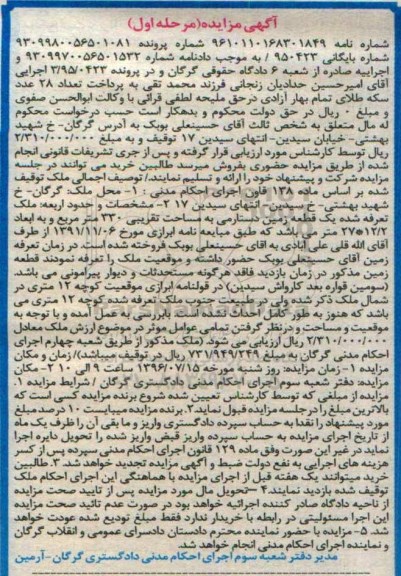 آگهی مزایده(مرحله اول)
شماره نامه ۹۶۱۰۱۱۰۱۶۸۳۰۱۸۴۹ شماره پرونده ۹۳۰۹۹۸۰۰۵۶۵۰۱۰۸۱
شماره بایگانی ۹۵۰۴۲۳ / به موجب دادنامه شماره ۹۳۰۹۹۷۰۰۵۶۵۰۱۵۳۲ و
اجراییه صادره از شعبه ۶ دادگاه حقوقی گرگان و در پرونده ۳/۹۵/۰۴۲۳ اجرایی
آقای امیرحسین حدادیان زنجانی فرزند محمد تقی به پرداخت تعداد ۲۸ عدد
سکه طلای تمام بهار آزادی درحق ملیحه لطفی قرائی با وکالت ابوالحسن صفوی
و مبلغ ۰ ریال در حق دولت محکوم و بدهکار است حسب درخواست محکوم
له مال متعلق به شخص ثالث آقای حسینعلی بوبک به آدرس گرگان- خ شهید
بهشتی- خیابان سیدین- انتهای سیدین ۱۷ توقیف و به مبلغ ۲/۳۱۰/۰۰۰/۰۰۰
ریال توسط کارشناس مورد ارزیابی قرار گرفته و پس از جری تشریفات قانونی انجام
شده از طریق مزایده حضوری بفروش میرسد طالبین خرید می توانند در جلسه
مزایده شرکت و پیشنهاد خود را ارائه و تسلیم نمایند/ توصیف اجمالی ملک توقیف
شده بر اساس ماده ۱۳۸ قانون اجرای احکام مدنی : ۱- محل ملک: گرگان- خ
شهید بهشتی- خ سیدین- انتهای سیدین ۱۷ ۲-مشخصات و حدود اربعه: ملک
تعرفه شده یک قطعه زمین دستدارمی به مساحت تقریبی ۳۳۰ متر مربع و به ابعاد
۱۲/۲*۲۷ متر می باشد که طبق مبایعه نامه ابرازی مورخ ۱۳۹۱/۱۱/۰۶ از طرف
آقای الله قلی علی آبادی به اقای حسینعلی بوبک فروخته شده است. در زمان تعرفه
زمین آقای حسینعلی بوبک حضور داشته و موقعیت ملک را تعرفه نمودند قطعه
زمین مذکور در زمان بازدید فاقد هرگونه مستحدثات و دیوار پیرامونی می باشد.
(سومین قواره بعد کارواش سیدین) در قولنامه ابرازی موقعیت کوچه ۱۲ متری در
شمال ملک ذکر شده ولی در طبیعت جنوب ملک تعرفه شده کوچه ۱۲ متری می
باشد که هنوز به طور کامل احداث نشده است با بررسی های به عمل آمده و با توجه به
موقعیت و مساحت و درنظر گرفتن تمامی عوامل موثر در موضوع ارزش ملک معادل
۲/۳۱۰/۰۰۰/۰۰۰ ریال ارزیابی می شود. (ملک مذکور از طریق شعبه چهارم اجرای
احکام مدنی گرگان به مبلغ ۷۳۱/۹۴۹/۲۴۹ ریال در توقیف میباشد)/ زمان و مکان
مزایده ۱- زمان مزایده: روز شنبه مورخه ۱۳۹۶/۰۷/۱۵ ساعت ۹ الی ۱۰ ۲- مکان
مزایده: دفتر شعبه سوم اجرای احکام مدنی دادگستری گرگان / شرایط مزایده ۱.
مزایده از مبلغی که توسط کارشناس تعیین شده شروع برنده مزایده کسی است که
بالاترین مبلغ را در جلسه مزایده قبول نماید.۲. برنده مزایده میبایست ۱۰ درصد مبلغ
مورد پیشنهاد را نقدا به حساب سپرده دادگستری واریز و ما بقی آن را ظرف یک ماه
از تاریخ اجرای مزایده به حساب سپرده واریز قبض واریز شده را تحویل دایره اجرا
نماید در غیر این صورت وفق ماده ۱۲۹ قانون اجرای احکام مدنی سپرده پس از کسر
هزینه های اجرایی به نفع دولت ضبط و آگهی مزایده تجدید خواهد شد. ۳. طالبین
خرید میتوانند یک هفته قبل از اجرای مزایده با هماهنگی این اجرای احکام ملک
توقیف شده بازدید نمایند.۴ -تحویل مال مورد مزایده پس از تایید صحت مزایده
از ناحیه دادگاه صادر کننده اجرائیه خواهد بود در صورت عدم تائید صحت مزایده
این اجرا مسئولیتی در رابطه با خریدار ندارد فقط مبلغ تودیع شده عودت خواهد
شد. ۵-مزایده با حضور نماینده محترم دادستان دادسرای عمومی و انقلاب گرگان
و نماینده اجرای احکام مدنی انجام خواهد شد.
مدیر دفتر شعبه سوم اجرای احکام مدنی دادگستری گرگان -آرمین